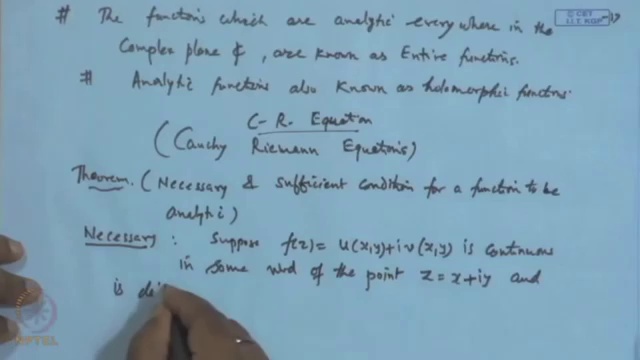 # The functions which are analytic everywhere in the
Complex plane ⊄, are known as Entire functions.
# Analytic functions also known as holomorphic functions.
C-R. Equation
(Cauchy Riemann Equations)
Theorem. (Necessary & sufficient condition for a function to be
analytic)
Necessary : Suppose f(z) = u(x,y)+iv(x,y) is continuous
in some nbd of the point z = x+iy and
is de
© CET
I.I.T. KGP
NPTEL